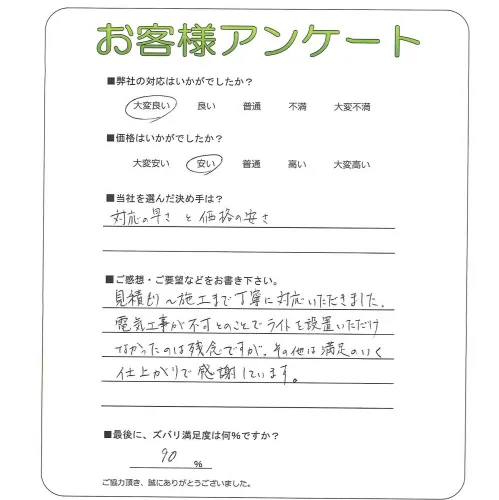 お客様アンケート
■弊社の対応はいかがでしたか？
大変良い 良い 普通 不満 大変不満
■価格はいかがでしたか？
大変安い 安い 普通 高い 大変高い
■当社を選んだ決め手は？
対応の早さと価格の安さ
■ご感想・ご要望などをお書き下さい。
見積り〜施工まで丁寧に対応いただきました。
電気工事が不可とのことでライトを設置いただけ
なかったのは残念ですが、その他は満足のいく
仕上がりで感謝しています。
■最後に、ズバリ満足度は何%ですか？
90 %
ご協力頂き、誠にありがとうございました。